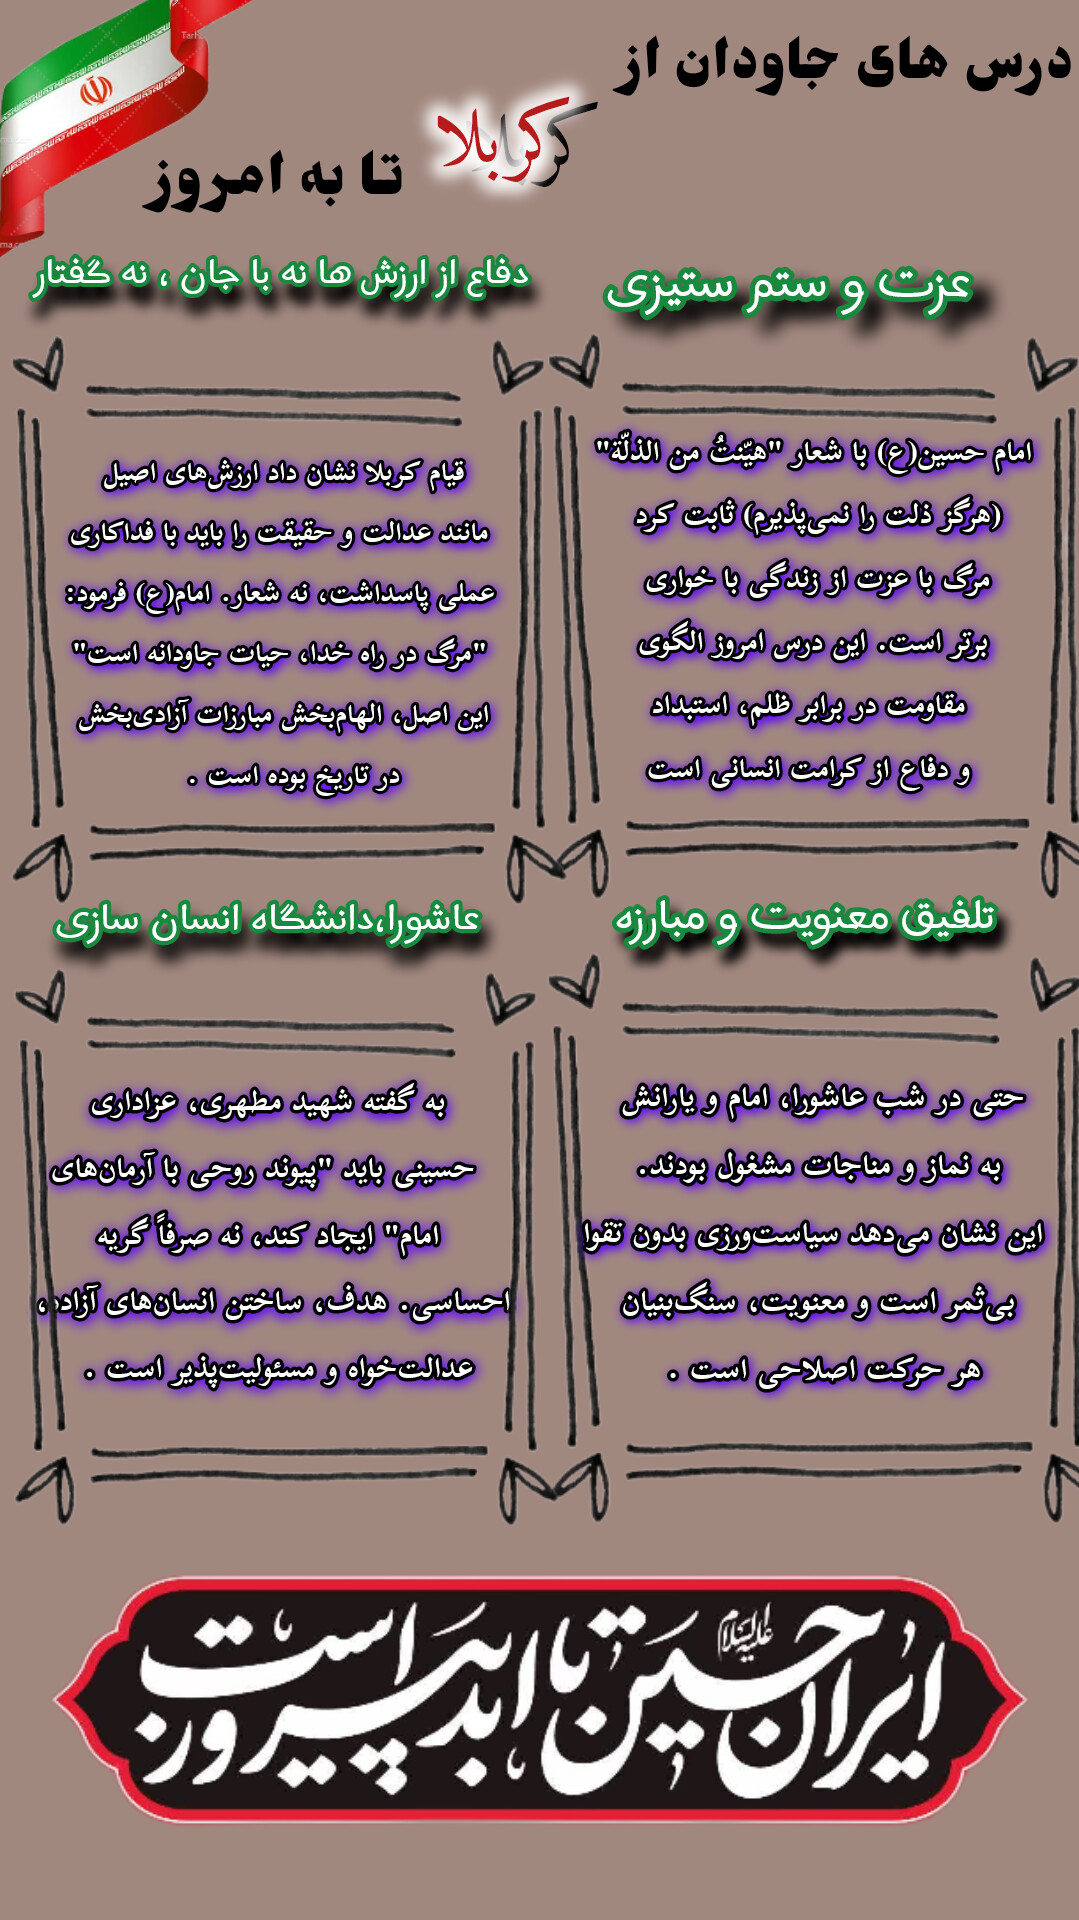 درس های جاودان از
کربلا
تا به امروز
عزت و ستم ستیزی
امام حسین(ع) با شعار "هیّنتُ من الذلّة"
(هرگز ذلت را نمی‌پذیرم) ثابت کرد
مرگ با عزت از زندگی با خواری
برتر است. این درس امروز الگوی
مقاومت در برابر ظلم، استبداد
و دفاع از کرامت انسانی است
دفاع از ارزش ها نه با جان ، نه گفتار
قیام کربلا نشان داد ارزش‌های اصیل
مانند عدالت و حقیقت را باید با فداکاری
عملی پاسداشت، نه شعار. امام(ع) فرمود:
"مرگ در راه خدا، حیات جاودانه است"
این اصل، الهام‌بخش مبارزات آزادی‌بخش
در تاریخ بوده است .
تلفیق معنویت و مبارزه
حتی در شب عاشورا، امام و یارانش
به نماز و مناجات مشغول بودند.
این نشان می‌دهد سیاست‌ورزی بدون تقوا
بی‌ثمر است و معنویت، سنگ‌بنیان
هر حرکت اصلاحی است .
عاشورا،دانشگاه انسان سازی
به گفته شهید مطهری، عزاداری
حسینی باید "پیوند روحی با آرمان‌های
امام" ایجاد کند، نه صرفاً گریه
احساسی. هدف، ساختن انسان‌های آزاده،
عدالت‌خواه و مسئولیت‌پذیر است .
ایران حسین علیه السلام تا ابد پیروز است